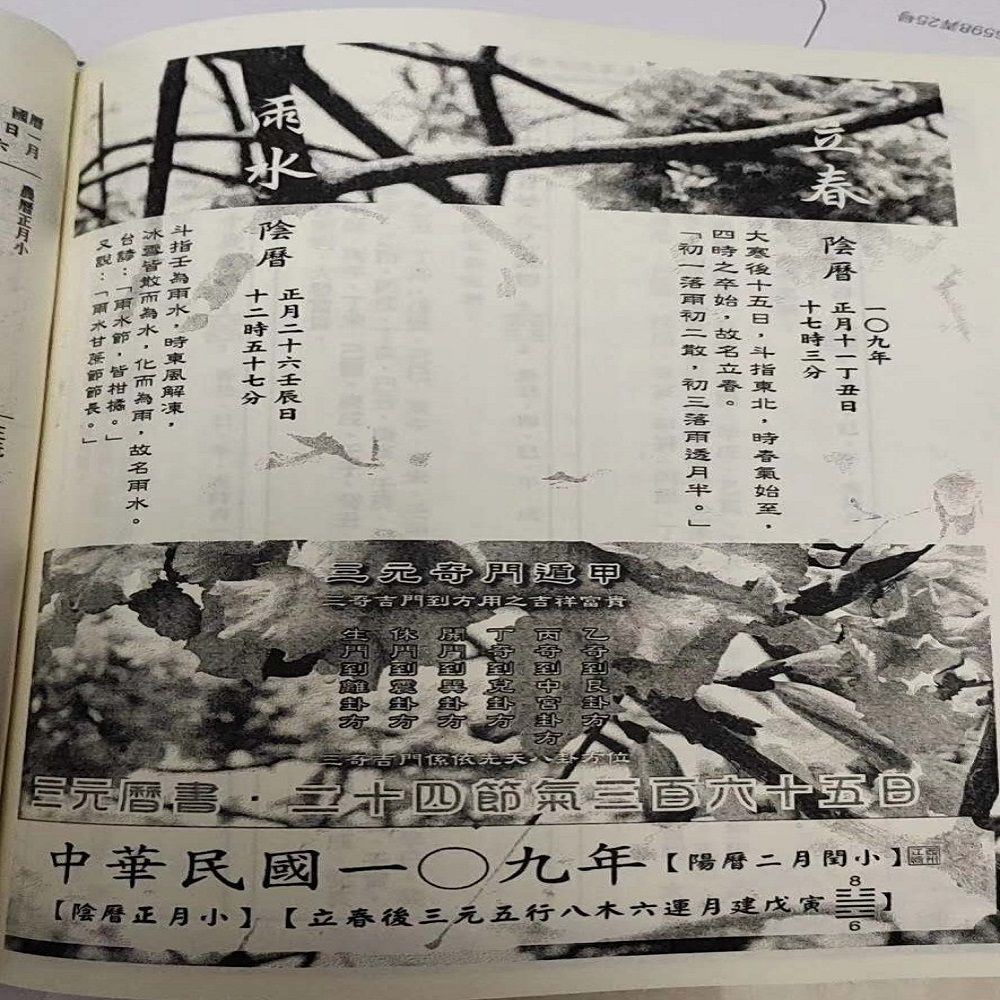 立春
一〇九年
陰曆 正月十一丁丑日
十七時三分
大寒後十五日，斗指東北，時春氣始至，
四時之卒始，故名立春。
「初一落雨初二散，初三落雨透月半。」
雨水
陰曆 正月二十六壬辰日
十二時五十七分
斗指壬為雨水，時東風解凍，
冰雪皆散而為水，化而為雨，故名雨水。
台諺：「雨水節，皆柑橘。」
又說：「雨水甘蔗節節長。」
三元奇門遁甲
三奇吉門到方用之吉祥富貴
乙奇到艮卦方
丙奇到中宮卦方
丁奇到兌卦方
開門到巽卦方
休門到震卦方
生門到離卦方
三奇吉門係依先天八卦方位
三元曆書·二十四節氣三百六十五日
中華民國一〇九年【陽曆二月閏小】
【陰曆正月小】【立春後三元五行八木六運月建戊寅 8 6】
曆一月
國日六
農曆正月小